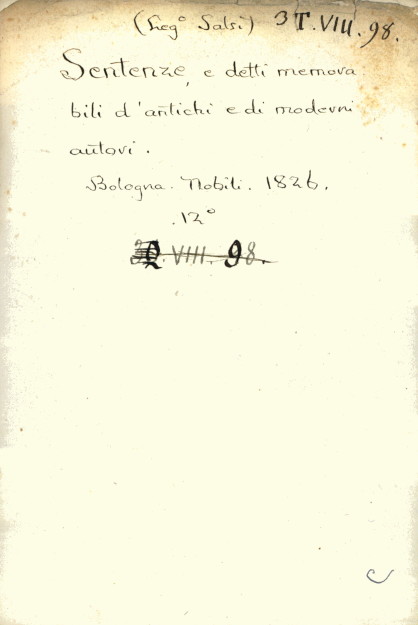 (Leg° Salsi) 3 T. VIII. 98.
Sentenze, e detti memora
bili d'antichi e di moderni
autori.
Bologna. Nobili. 1826.
12°
VIII. 98.